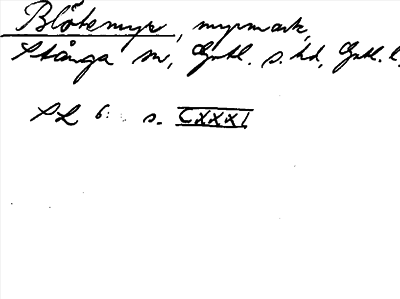 Blötemyr, myrmark,
Stånga sn, Gotl. s. hd, Gotl. l.
SL 6: s. CXXXI